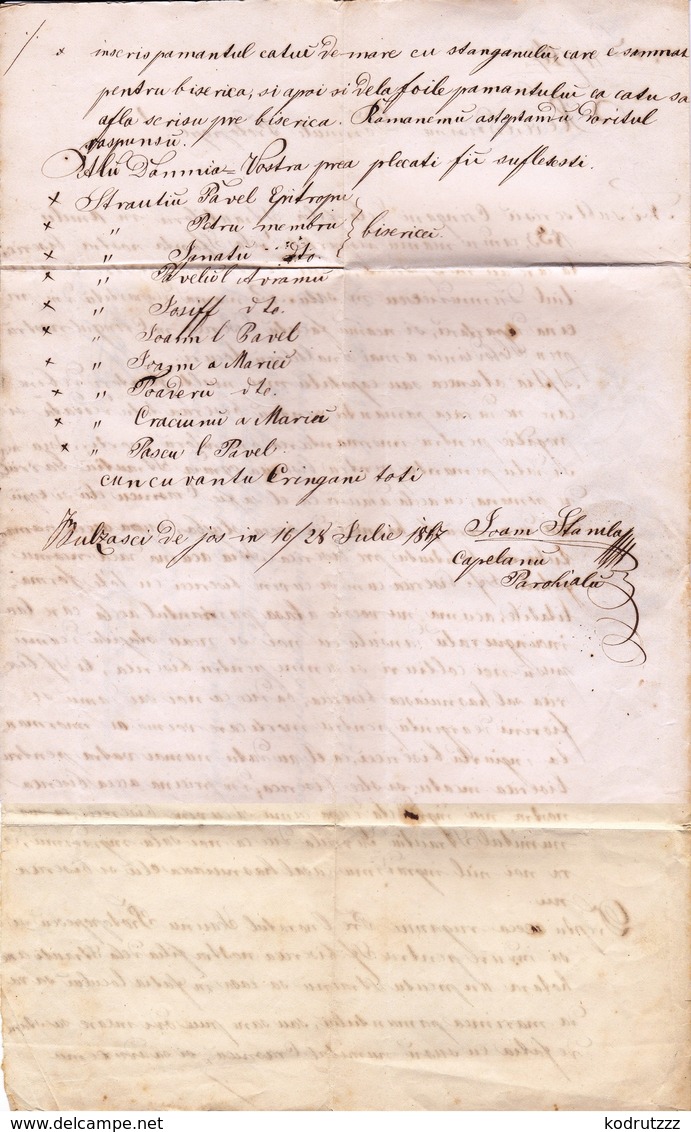 inscris pamantul catu e de mare cu stanganulu, care e semnat
pentru biserica, si apoi si dela foile pamantului ca catu sa
afla scrisu pre biserica. Ramanemu asteptandu doritul
raspunsu.
Domnia=Vostra prea plecati fii sufletesti.
x Strautiu Pavel Epitropu
x " Petru membru } bisericei.
x " Ianatu dto.
x " Paveliu l Avramu
x " Iosiff dto.
x " Ioann l Pavel
x " Ioann a Mariei
x " Toaderu dto.
x " Craciunu a Mariei
x " Pascu l Pavel
cu un cuvantu Cringani toti
Bulzasci de jos in 16/28 Iulie 1867 Ioam Stanila
Capelanu
Parohialu
kodrutzzz